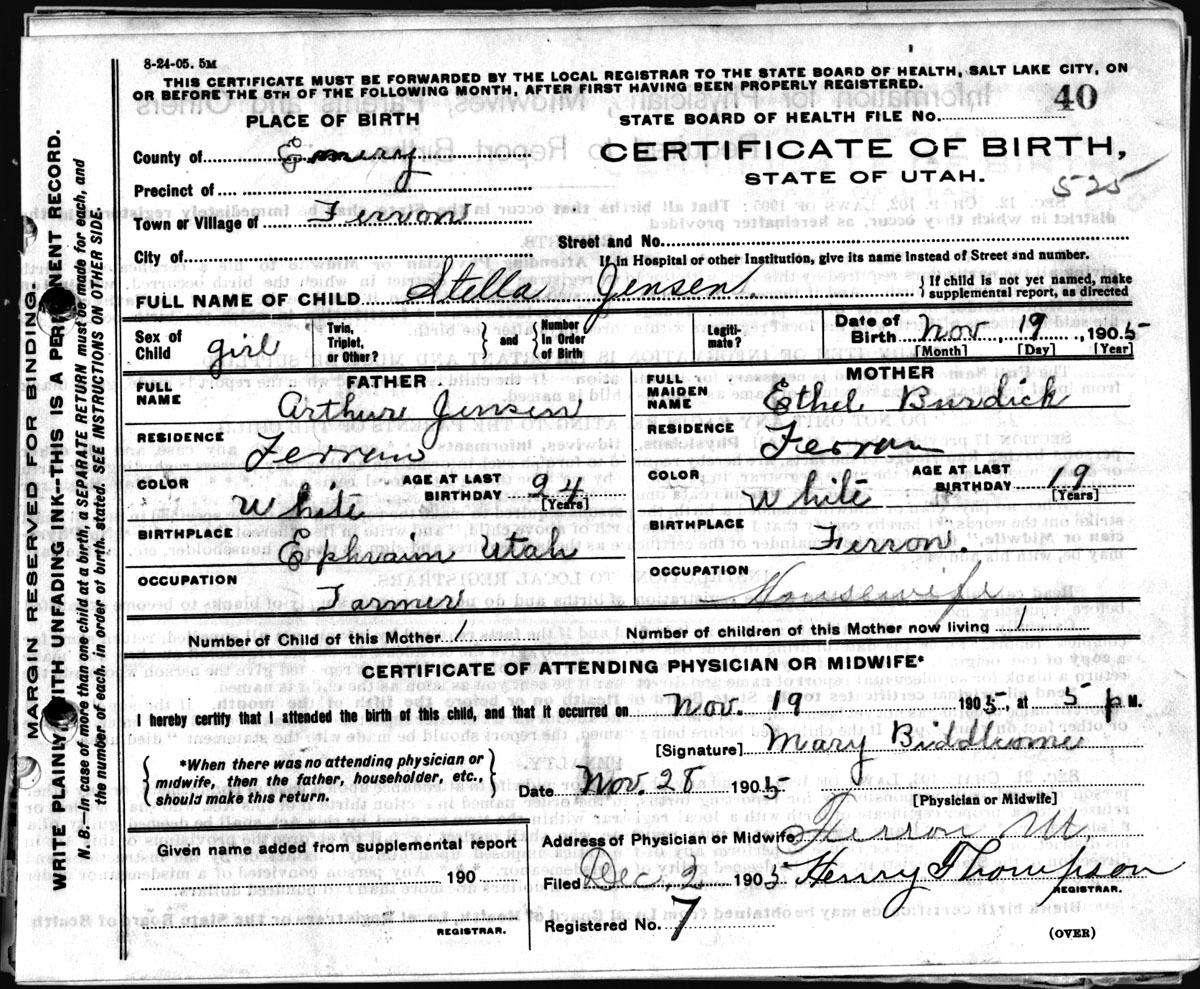 8-24-05. 5M
THIS CERTIFICATE MUST BE FORWARDED BY THE LOCAL REGISTRAR TO THE STATE BOARD OF HEALTH, SALT LAKE CITY, ON
OR BEFORE THE 5TH OF THE FOLLOWING MONTH, AFTER FIRST HAVING BEEN PROPERLY REGISTERED.
PLACE OF BIRTH
STATE BOARD OF HEALTH FILE No. 40
County of Emery
CERTIFICATE OF BIRTH,
Precinct of
STATE OF UTAH.
525
Town or Village of Ferron
Street and No.
City of
If in Hospital or other Institution, give its name instead of Street and number.
FULL NAME OF CHILD Stella Jensen
{ If child is not yet named, make
supplemental report, as directed
Sex of Child girl
Twin, Triplet, or Other?
{ and } Number in Order of Birth
Legiti- mate?
Date of Birth Nov, 19, 1905
[Month] [Day] [Year]
FATHER
FULL NAME
Arthur Jensen
MOTHER
FULL MAIDEN NAME
Ethel Burdick
RESIDENCE
Ferron
RESIDENCE
Ferron
COLOR
White
AGE AT LAST BIRTHDAY 24
[Years]
COLOR
White
AGE AT LAST BIRTHDAY 19
[Years]
BIRTHPLACE
Ephraim Utah
BIRTHPLACE
Ferron.
OCCUPATION
Farmer
OCCUPATION
Housewife
Number of Child of this Mother 1
Number of children of this Mother now living 1
CERTIFICATE OF ATTENDING PHYSICIAN OR MIDWIFE*
I hereby certify that I attended the birth of this child, and that it occurred on Nov. 19 1905, at 5 p M.
{ *When there was no attending physician or
midwife, then the father, householder, etc.,
should make this return. }
[Signature] Mary Biddlecome
Date Nov. 28 1905
[Physician or Midwife]
Given name added from supplemental report
190
REGISTRAR.
Address of Physician or Midwife Ferron Ut
Filed Dec, 2 1905 Henry Thompson
REGISTRAR.
Registered No. 7
(OVER)
MARGIN RESERVED FOR BINDING.
WRITE PLAINLY, WITH UNFADING INK—THIS IS A PERMANENT RECORD.
N. B.—In case of more than one child at a birth, a SEPARATE RETURN must be made for each, and
the number of each, in order of birth, stated. SEE INSTRUCTIONS ON OTHER SIDE.